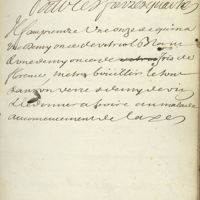 pour les fievres quarte
Il faut prendre Une onze de quina
Une demy once de vitriol Blanc
de une demy once de iris de
florence metre bouillir le tout
dans un verre et demy de vin
Le donner a boire au malade
au comencement de l'acces